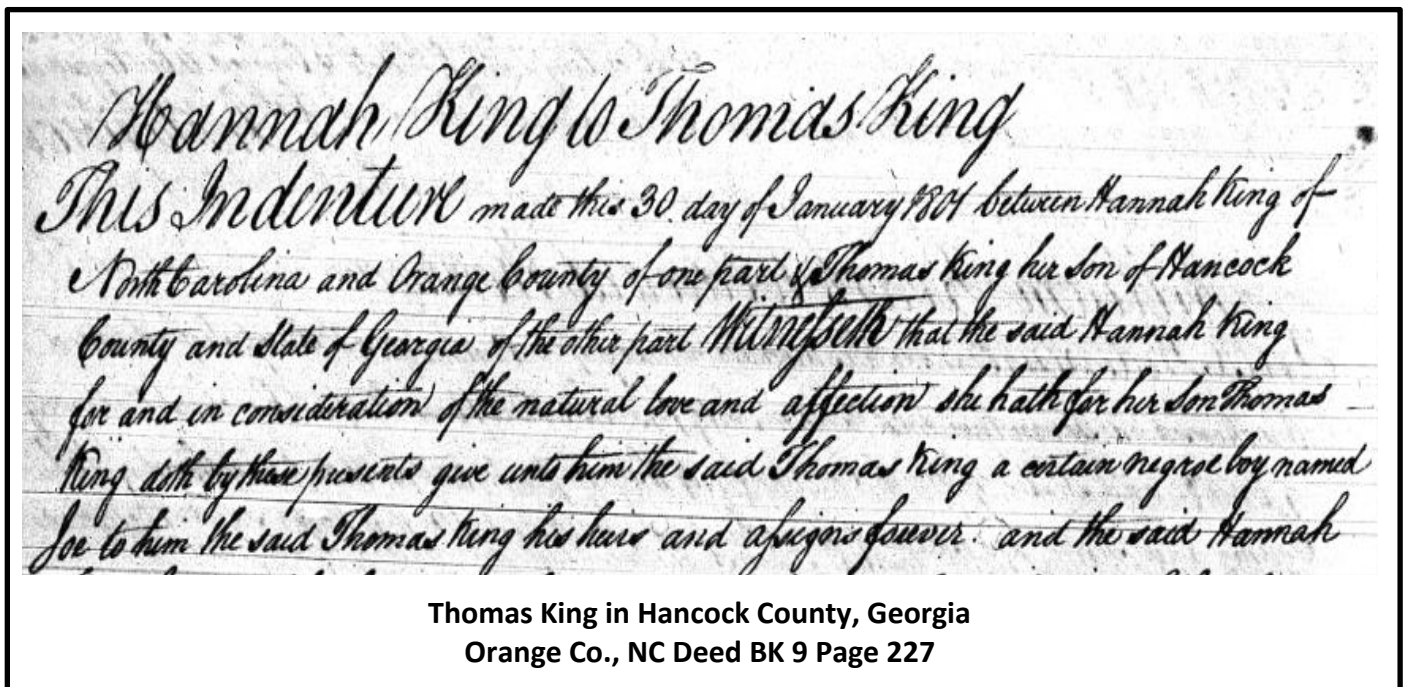 Hannah King to Thomas King
This Indenture made this 30. day of January 1801 between Hannah King of
North Carolina and Orange County of one part & Thomas King her son of Hancock
County and State of Georgia of the other part Witnesseth that the said Hannah King
for and in consideration of the natural love and affection she hath for her son Thomas
King doth by these presents give unto him the said Thomas King a certain negroe boy named
Joe to him the said Thomas King his heirs and assigns forever. and the said Hannah
Thomas King in Hancock County, Georgia
Orange Co., NC Deed BK 9 Page 227